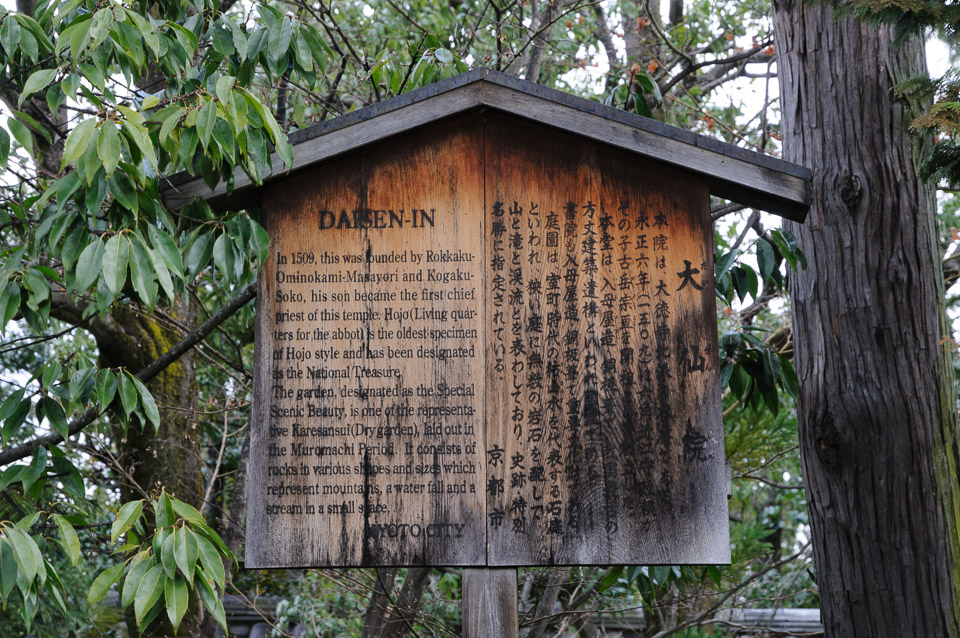 DAISEN-IN
In 1509, this was founded by Rokkaku-
Ominokami-Masayori and Kogaku-
Soko, his son became the first chief
priest of this temple. Hojo(Living quar-
ters for the abbot) is the oldest specimen
of Hojo style and has been designated
as the National Treasure.
The garden, designated as the Special
Scenic Beauty, is one of the representa-
tive Karesansui(Dry garden), laid out in
the Muromachi Period. It consists of
rocks in various shapes and sizes which
represent mountains, a water fall and a
stream in a small space.
KYOTO CITY
大仙院
本院は、大徳寺
永正六年(一五〇九
その子古岳宗亘を開祖
本堂は、入母屋造、銅板
方丈建築の遺構といわれ
書院も入母屋造、銅板葺で、重要
庭園は、室町時代の枯山水を代表する石庭
といわれ、狭い庭に無数の岩石を配して
山と滝と渓流とを表わしており、史跡・特別
名勝に指定されている。
京都市